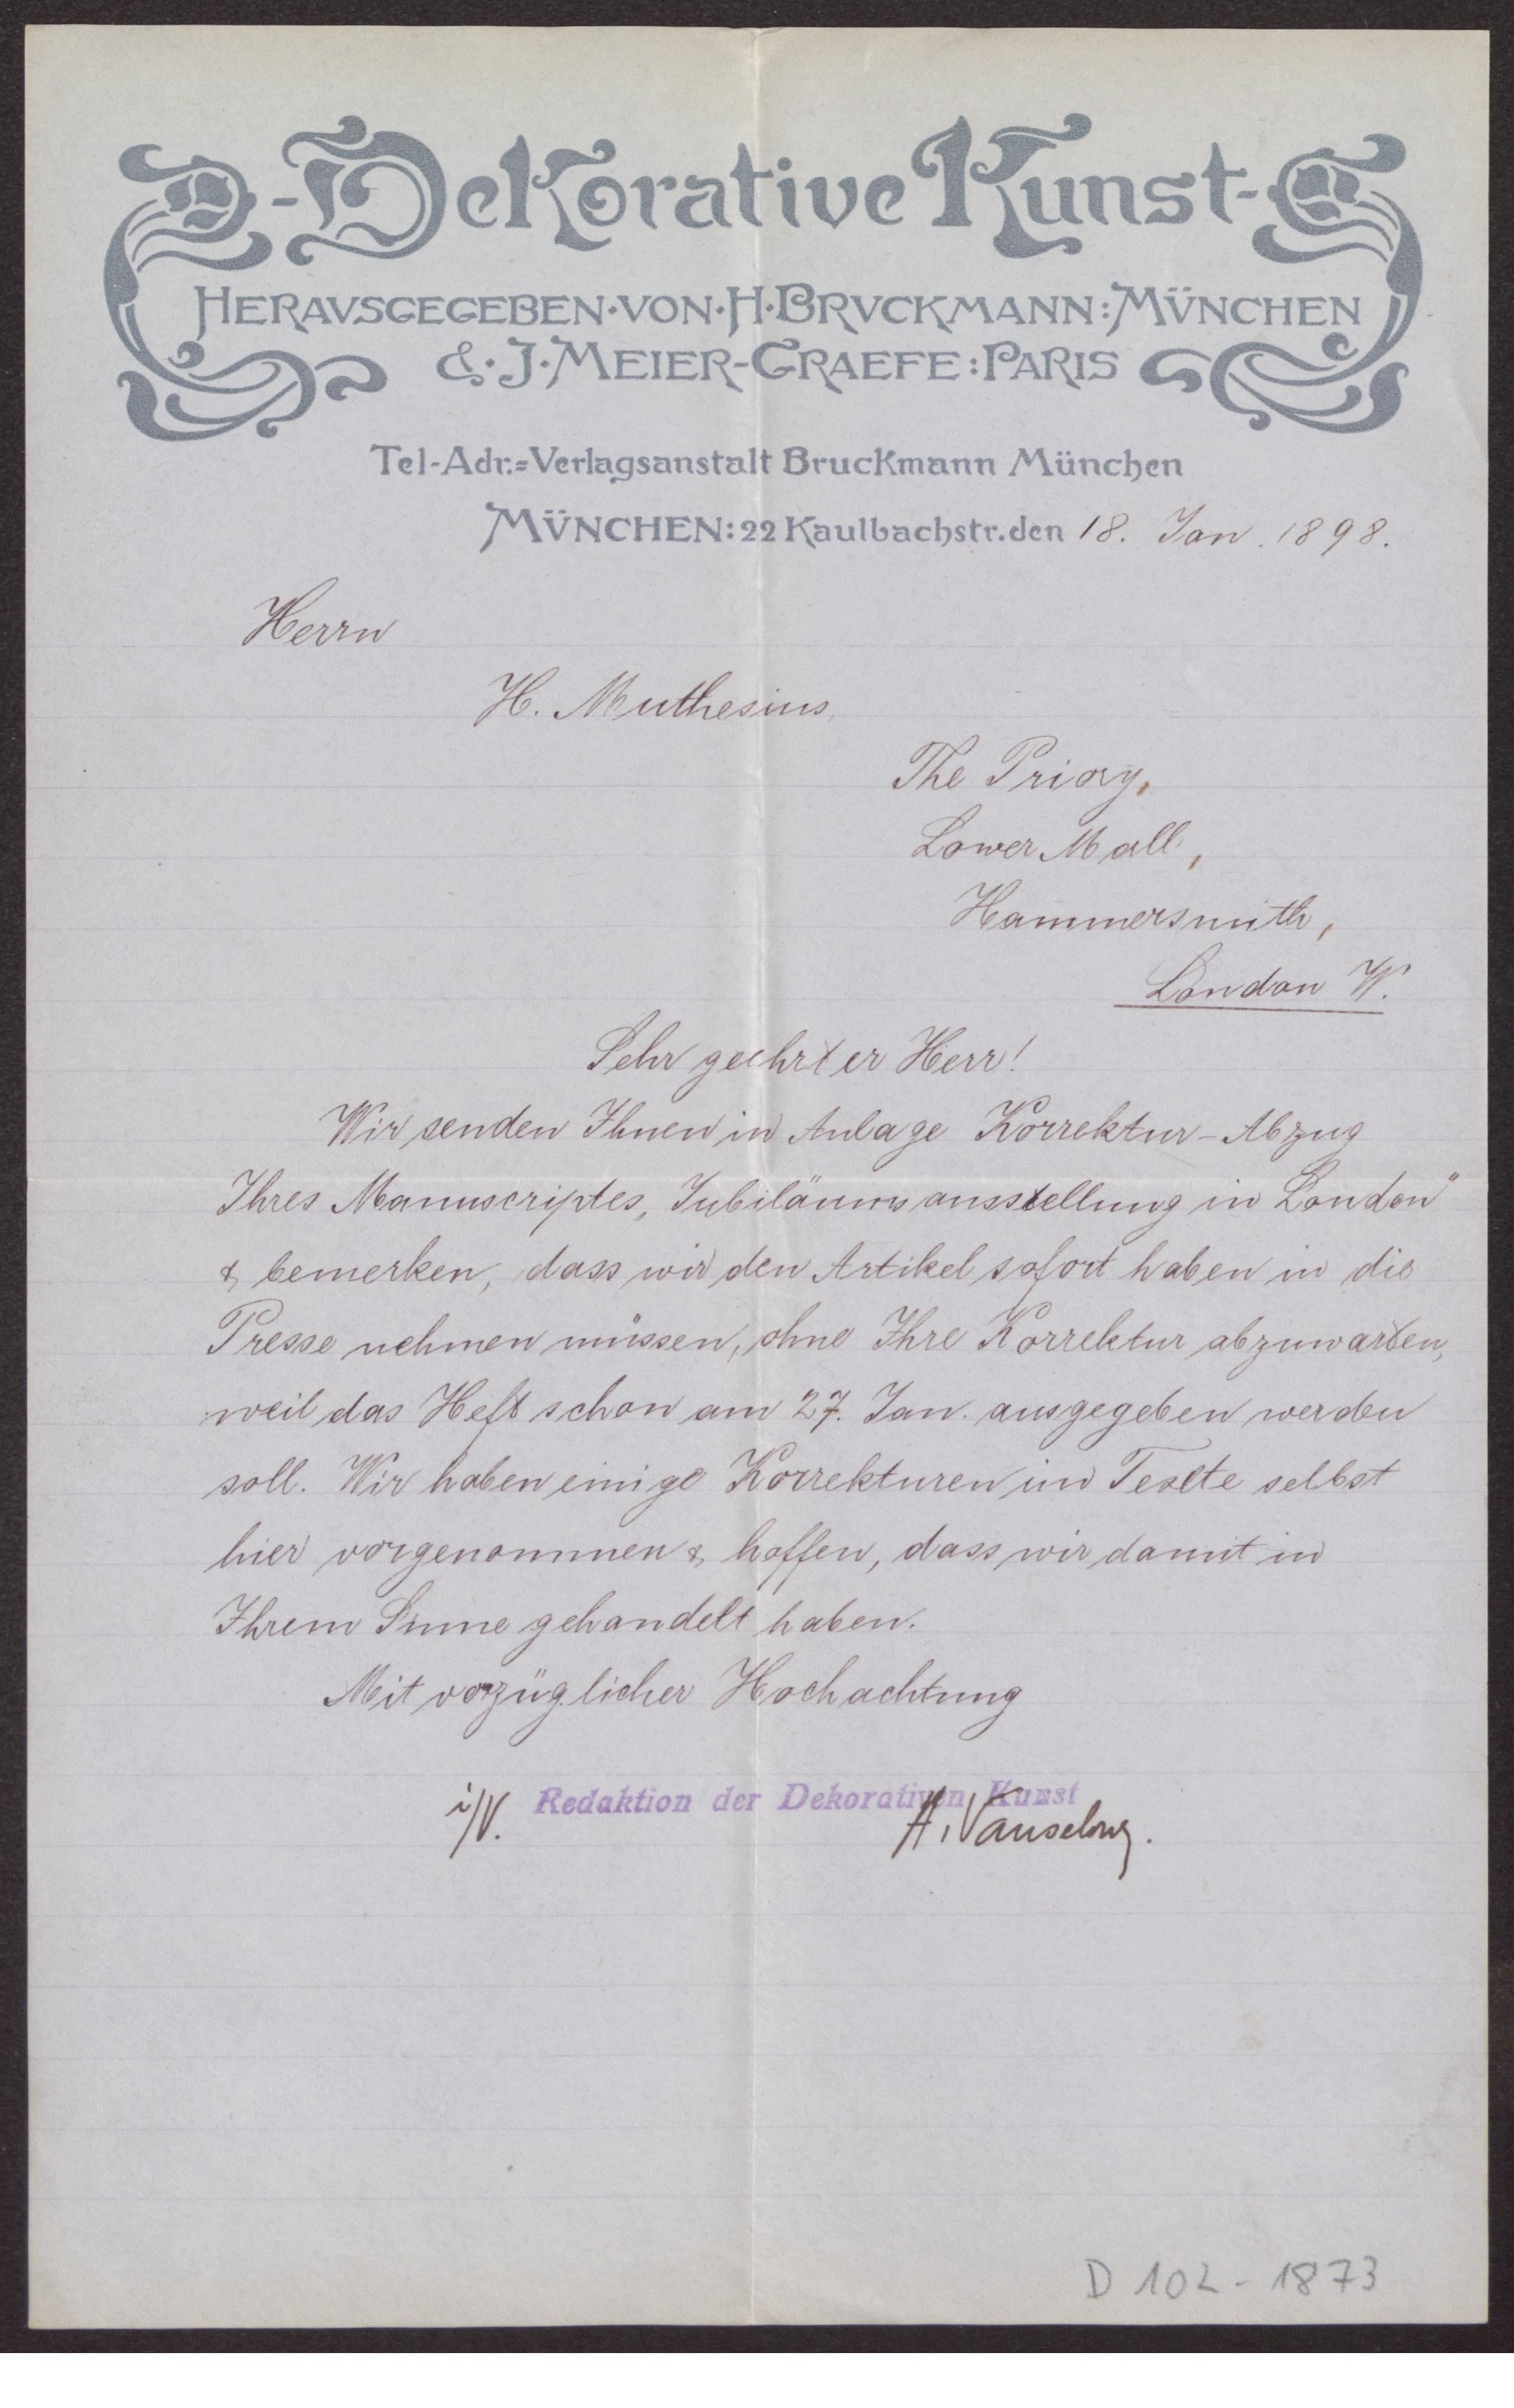 -Dekorative Kunst-
HERAVSGEGEBEN·VON·H·BRVCKMANN:MÜNCHEN
&·J·MEIER-GRAEFE:PARIS
Tel-Adr.=Verlagsanstalt Bruckmann München
MÜNCHEN: 22 Kaulbachstr. den 18. Jan. 1898.
Herrn
H. Muthesius,
The Priory,
Lower Mall,
Hammersmith,
London W.
Sehr geehrter Herr!
Wir senden Ihnen in Anlage Korrektur-Abzug
Ihres Manuscriptes „Jubiläumsausstellung in London"
& bemerken, dass wir den Artikel sofort haben in die
Presse nehmen müssen, ohne Ihre Korrektur abzuwarten,
weil das Heft schon am 27. Jan. ausgegeben werden
soll. Wir haben einige Korrekturen im Texte selbst
hier vorgenommen & hoffen, dass wir damit in
Ihrem Sinne gehandelt haben.
Mit vorzüglicher Hochachtung
i/V. Redaktion der Dekorativen Kunst
H.
D 102-1873